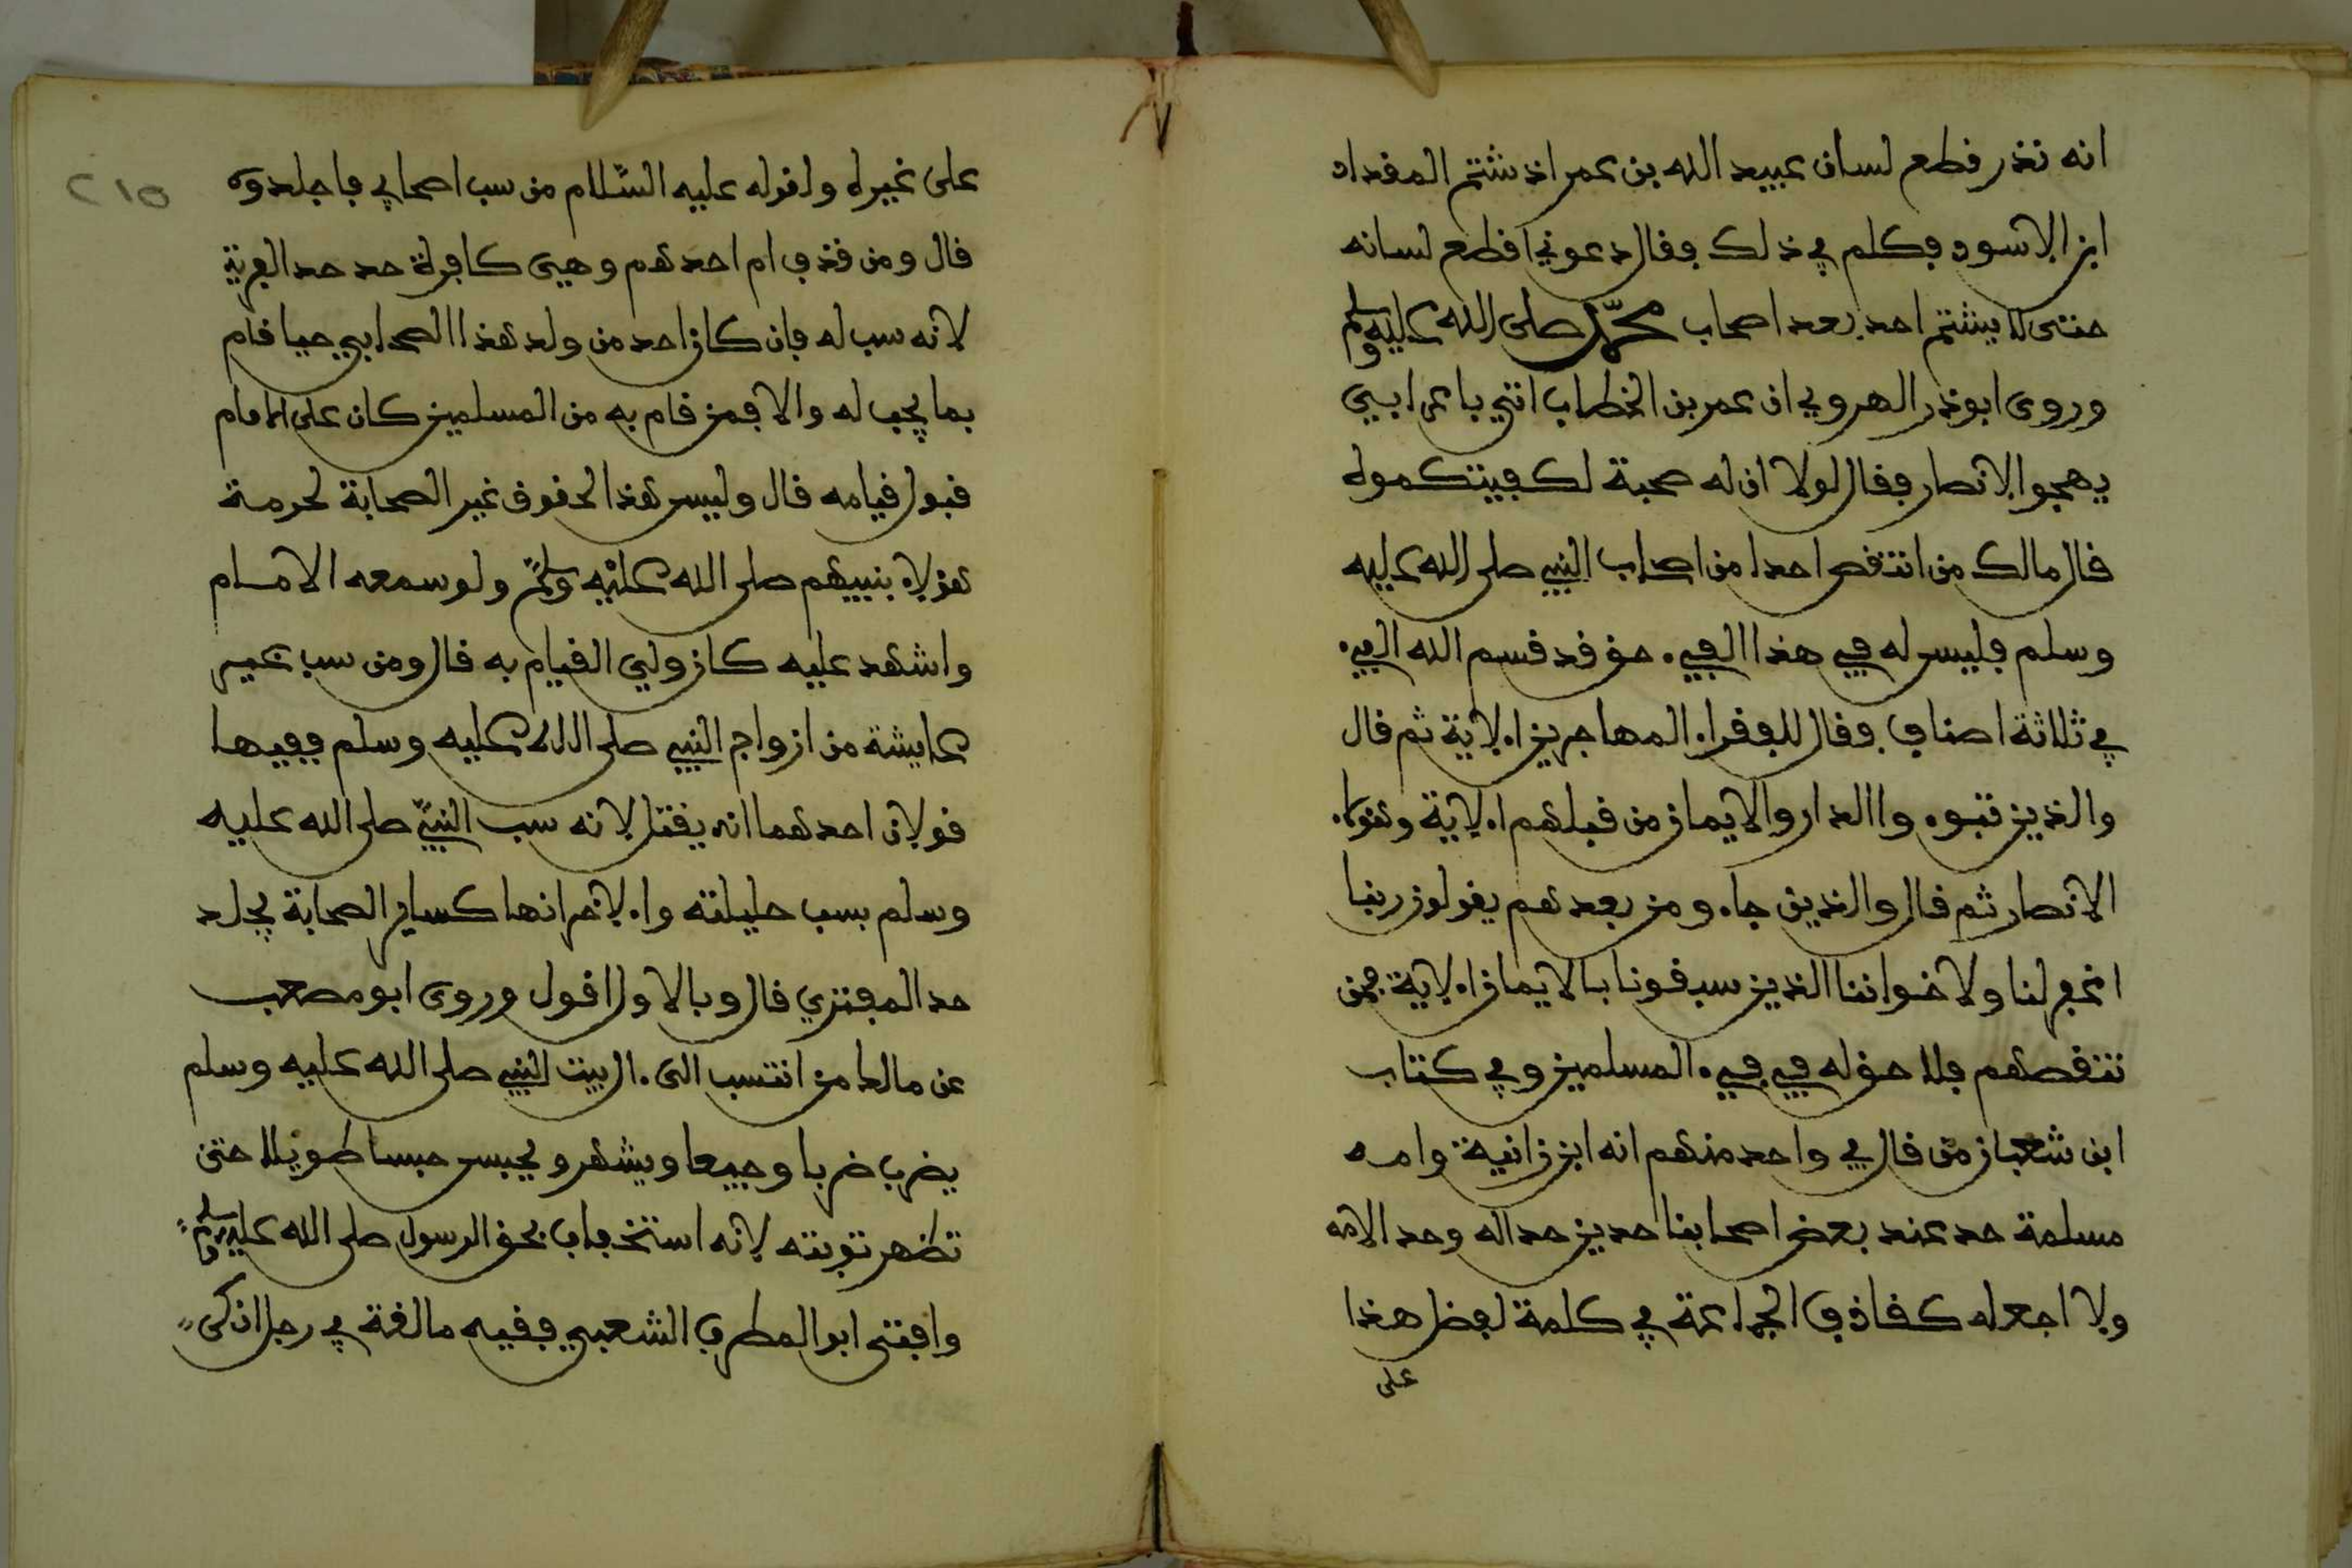 انه نذر قطع لسان عبيد الله بن عمر اذ شتم المقداد
ابن الاسود فكلم في ذلك فقال دعوني اقطع لسانه
حتى لا يشتم احد بعد اصحاب محمّد صلى الله عليه وسلم
وروى ابو ذر الهروي ان عمر بن الخطاب اتي باعرابيي
يهجوا الانصار فقال لولا ان له صحبة لكفيتكموه
قال مالك من انتقص احدا من اصحاب النبي صلى الله عليه
وسلم فليس له في هذا الفيء حق قد قسم الله الفيء
في ثلاثة اصناف فقال للفقراء المهاجرين الاية ثم قال
والذين تبوءوا الدار والايمان من قبلهم الاية وهؤلاء
الانصار ثم قال والذين جاءو من بعدهم يقولون ربنا
اغفر لنا ولاخواننا الذين سبقونا بالايمان الاية فمن
تنقصهم فلا حق له في فيء المسلمين وفي كتاب
ابن شعبان من قال في واحد منهم انه ابن زانية وامه
مسلمة حد عند بعض اصحابنا حدين حدا له وحد الامه
ولا اجعله كقاذف الجماعة في كلمة لفضل هذا
على
٢١٥
على غيره ولقوله عليه السّلام من سب اصحابي فاجلدوه
قال ومن قذف ام احدهم وهي كافرة حد حد الفرية
لانه سب له فان كان احد من ولد هذا الصحابي حيا قام
بما يجب له والا فمن قام به من المسلمين كان على الامام
قبول قيامه قال وليس هذا لحقوق غير الصحابة لحرمة
هؤلاء بنبيهم صلى الله عليه وسلم ولو سمعه الامام
واشهد عليه كان ولي القيام به قال ومن سب غير
عايشة من ازواج النبي صلى الله عليه وسلم ففيها
قولان احدهما انه يقتل لانه سب النبيّ صلى الله عليه
وسلم بسب حليلته والاخر انها كساير الصحابة يجلد
حد المفتري قال وبالاول اقول وروى ابو مصعب
عن مالك من انتسب الى ءال بيت النبي صلى الله عليه وسلم
يضرب ضربا وجيعا ويشهر ويحبس حبسا طويلا حتى
تظهر توبته لانه استخفاف بحق الرسول صلى الله عليه وسلم
وافتى ابو المطرف الشعبي فقيه مالقة في رجل انكر